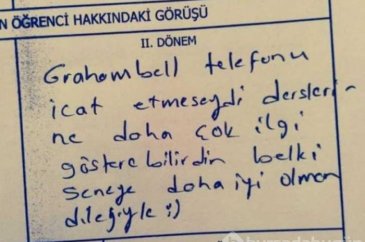 N ÖĞRENCİ HAKKINDAKİ GÖRÜŞÜ
II. DÖNEM
Grahambell telefonu
icat etmeseydi dersleri-
ne daha çok ilgi
gösterebilirdin belki
seneye daha iyi olman
dileğiyle :)